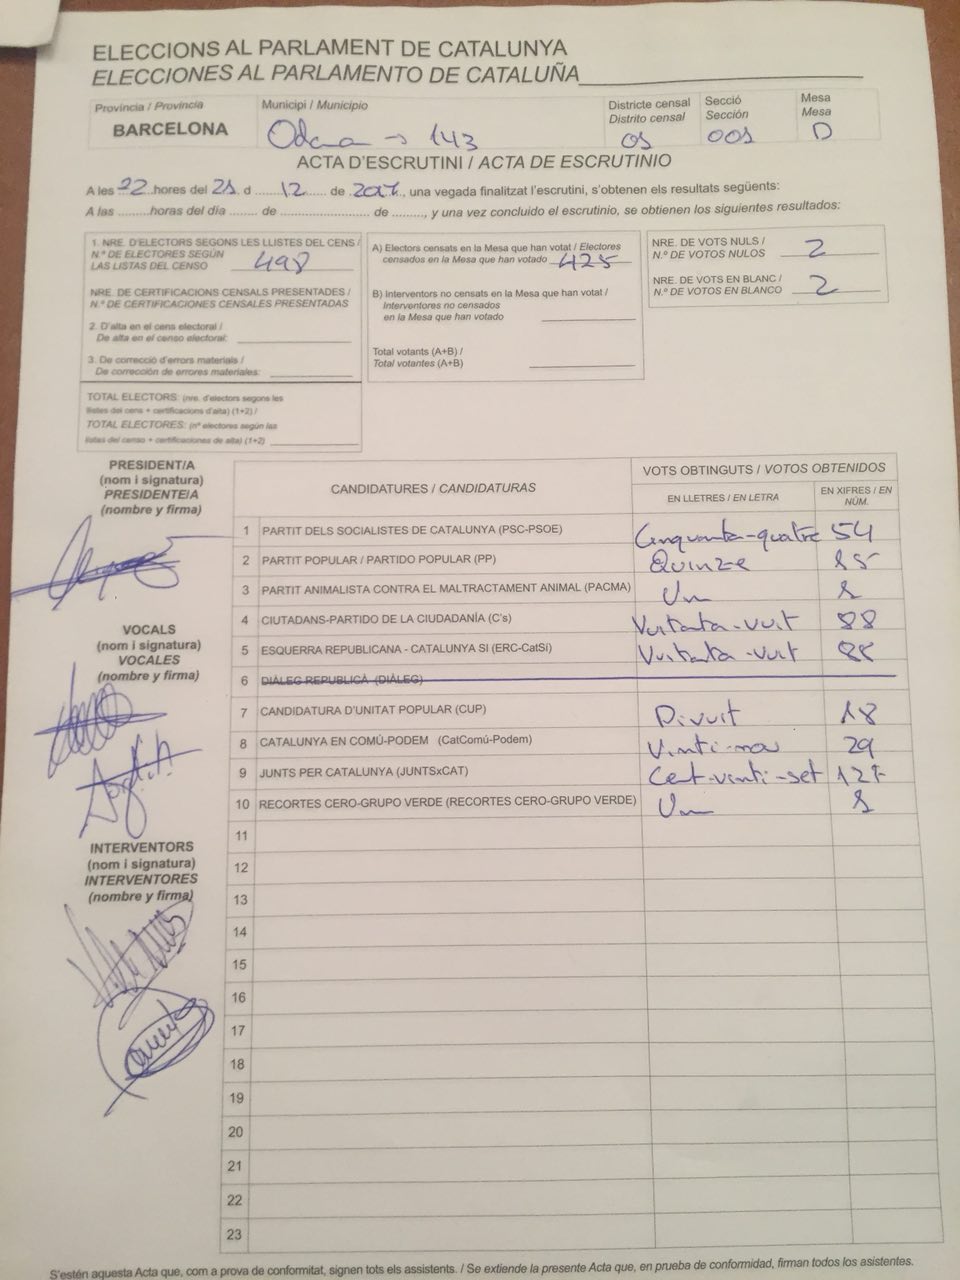 ELECCIONS AL PARLAMENT DE CATALUNYA
ELECCIONES AL PARLAMENTO DE CATALUÑA
Província / Provincia
BARCELONA
Municipi / Municipio
Odena → 143
Districte censal
Distrito censal
01
Secció
Sección
001
Mesa
Mesa
D
ACTA D'ESCRUTINI / ACTA DE ESCRUTINIO
A les 22 hores del 21 d ........ 12 ...... de 2017, una vegada finalitzat l'escrutini, s'obtenen els resultats següents:
A las .........horas del día ........ de ......................... de ........, y una vez concluido el escrutinio, se obtienen los siguientes resultados:
1. NRE. D'ELECTORS SEGONS LES LLISTES DEL CENS /
N.º DE ELECTORES SEGÚN
LAS LISTAS DEL CENSO 498
NRE. DE CERTIFICACIONS CENSALS PRESENTADES /
N.º DE CERTIFICACIONES CENSALES PRESENTADAS
2. D'alta en el cens electoral /
De alta en el censo electoral:
3. De correcció d'errors materials /
De corrección de errores materiales:
TOTAL ELECTORS: (nre. d'electors segons les
llistes del cens + certificacions d'alta) (1+2) /
TOTAL ELECTORES: (nº electores según las
listas del censo + certificaciones de alta) (1+2)
A) Electors censats en la Mesa que han votat / Electores
censados en la Mesa que han votado 425
B) Interventors no censats en la Mesa que han votat /
Interventores no censados
en la Mesa que han votado
Total votants (A+B) /
Total votantes (A+B)
NRE. DE VOTS NULS /
N.º DE VOTOS NULOS 2
NRE. DE VOTS EN BLANC /
N.º DE VOTOS EN BLANCO 2
PRESIDENT/A
(nom i signatura)
PRESIDENTE/A
(nombre y firma)
VOCALS
(nom i signatura)
VOCALES
(nombre y firma)
INTERVENTORS
(nom i signatura)
INTERVENTORES
(nombre y firma)
CANDIDATURES / CANDIDATURAS
VOTS OBTINGUTS / VOTOS OBTENIDOS
EN LLETRES / EN LETRA
EN XIFRES / EN NÚM.
1 PARTIT DELS SOCIALISTES DE CATALUNYA (PSC-PSOE) Cinquanta-quatre 54
2 PARTIT POPULAR / PARTIDO POPULAR (PP) Quinze 15
3 PARTIT ANIMALISTA CONTRA EL MALTRACTAMENT ANIMAL (PACMA) Un 1
4 CIUTADANS-PARTIDO DE LA CIUDADANÍA (C's) Vuitanta-vuit 88
5 ESQUERRA REPUBLICANA - CATALUNYA SI (ERC-CatSí) Vuitanta-vuit 88
6 DIÀLEG REPUBLICÀ (DIÀLEG)
7 CANDIDATURA D'UNITAT POPULAR (CUP) Divuit 18
8 CATALUNYA EN COMÚ-PODEM (CatComú-Podem) Vinti-nou 29
9 JUNTS PER CATALUNYA (JUNTSxCAT) Cent-vinti-set 127
10 RECORTES CERO-GRUPO VERDE (RECORTES CERO-GRUPO VERDE) Un 1
11
12
13
14
15
16
17
18
19
20
21
22
23
S'estén aquesta Acta que, com a prova de conformitat, signen tots els assistents. / Se extiende la presente Acta que, en prueba de conformidad, firman todos los asistentes.